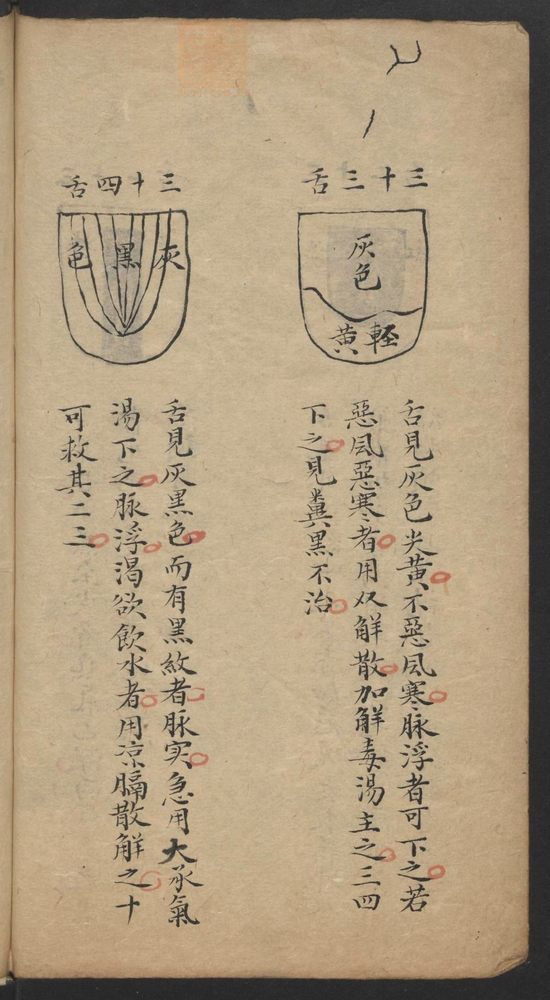 三十三舌
灰色
輕黃
舌見灰色尖黃不惡風寒脉浮者可下之若
惡風惡寒者用双解散加解毒湯主之三四
下之見糞黑不治
三十四舌
灰黑色
舌見灰黑色而有黑紋者脉实急用大承氣
湯下之脉浮渴欲飲水者用凉膈散解之十
可救其二三